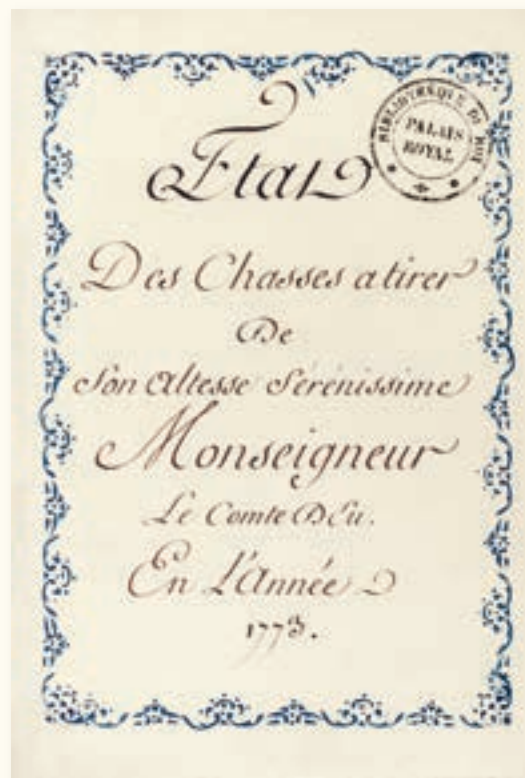 Etat
BIBLIOTHÈQUE DU ROI
PALAIS
ROYAL
Des Chasses a tirer
De
Son Altesse Sérénissime
Monseigneur
Le Comte D'Eu.
En L'Année
1773.